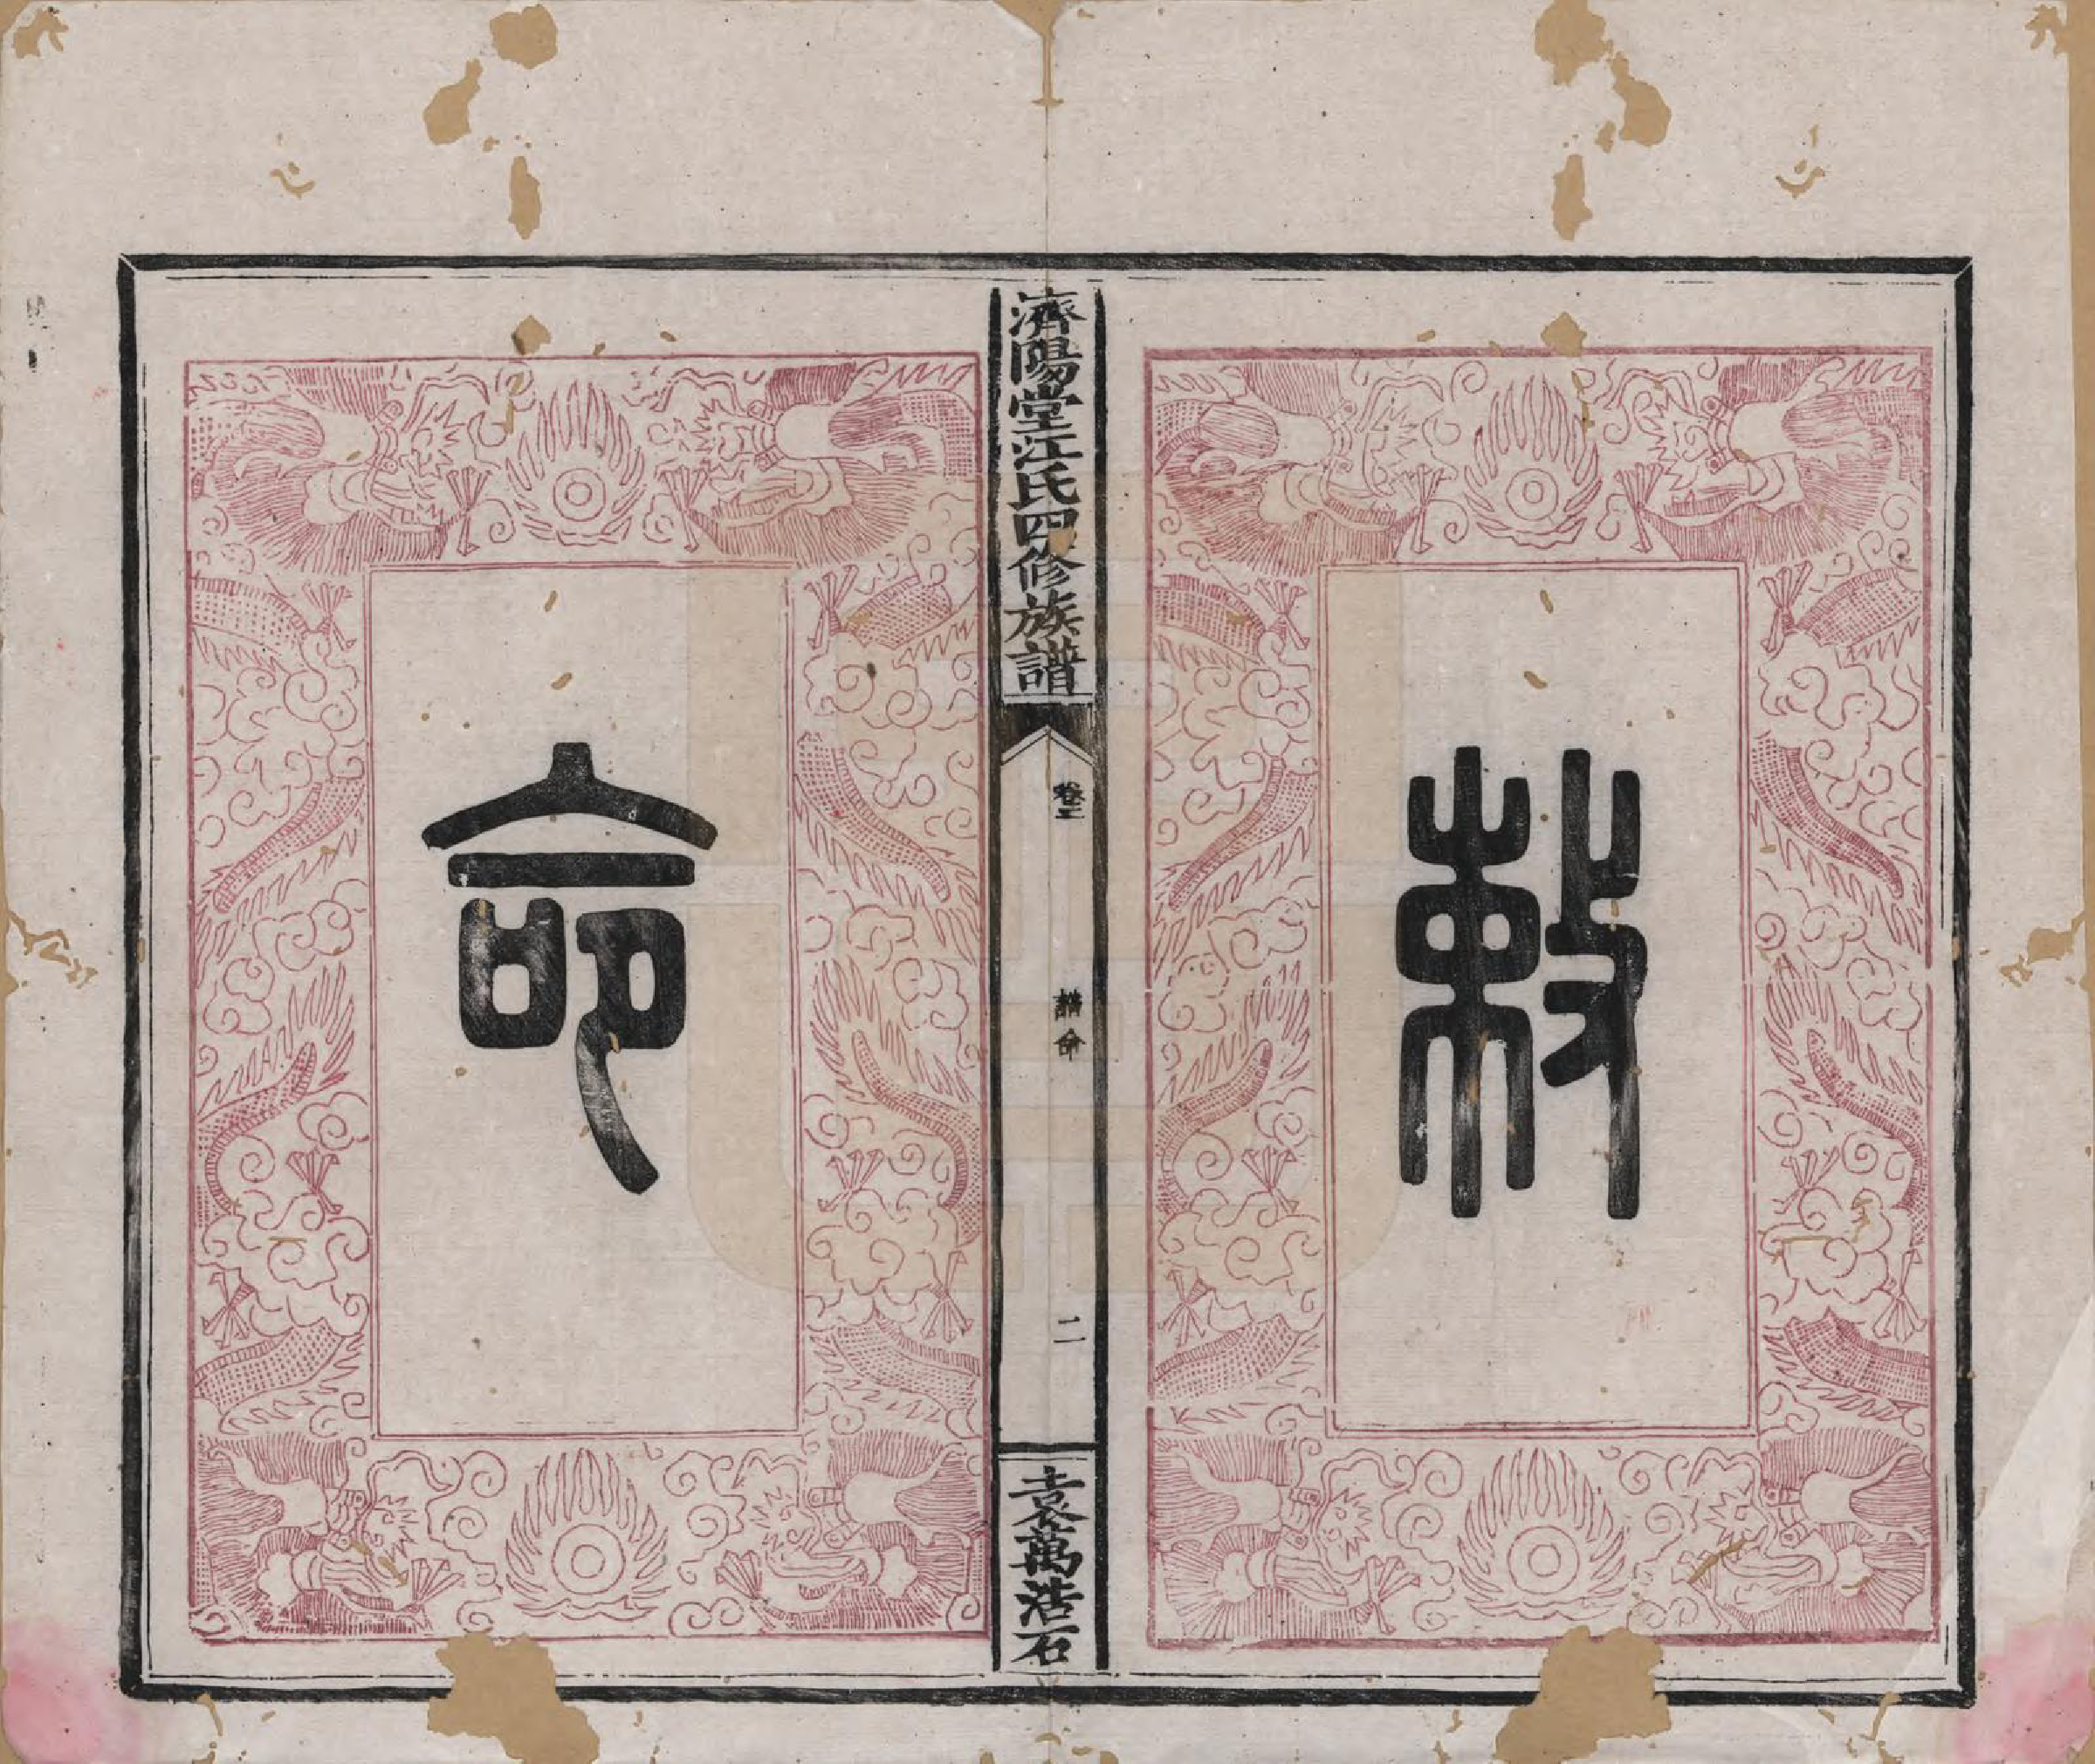 敕
濟陽堂江氏四修族譜
卷二
誥命
二
袁萬浩石
命